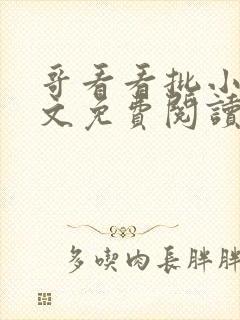 哥看看批小
文免費閱讀
多喫肉長胖胖